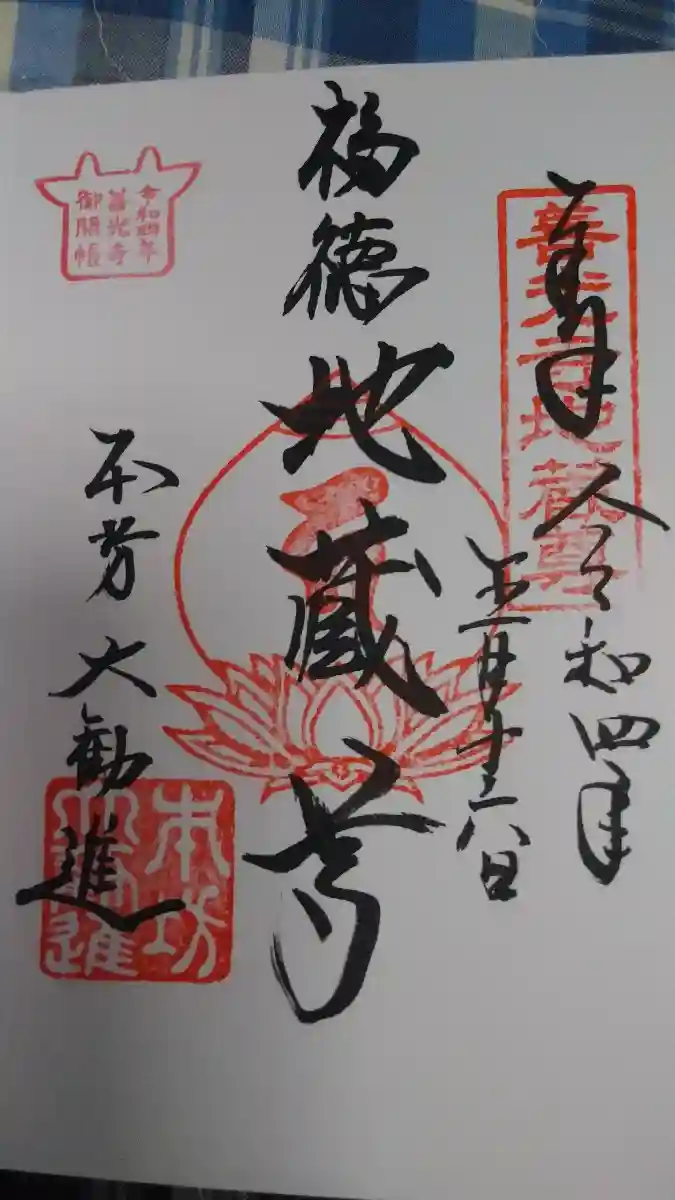 奉拝 令和四年
五月十六日
善光寺地蔵尊
福徳地蔵尊
令和四年
善光寺
御開帳
本坊 大勧進
本坊
大勧進